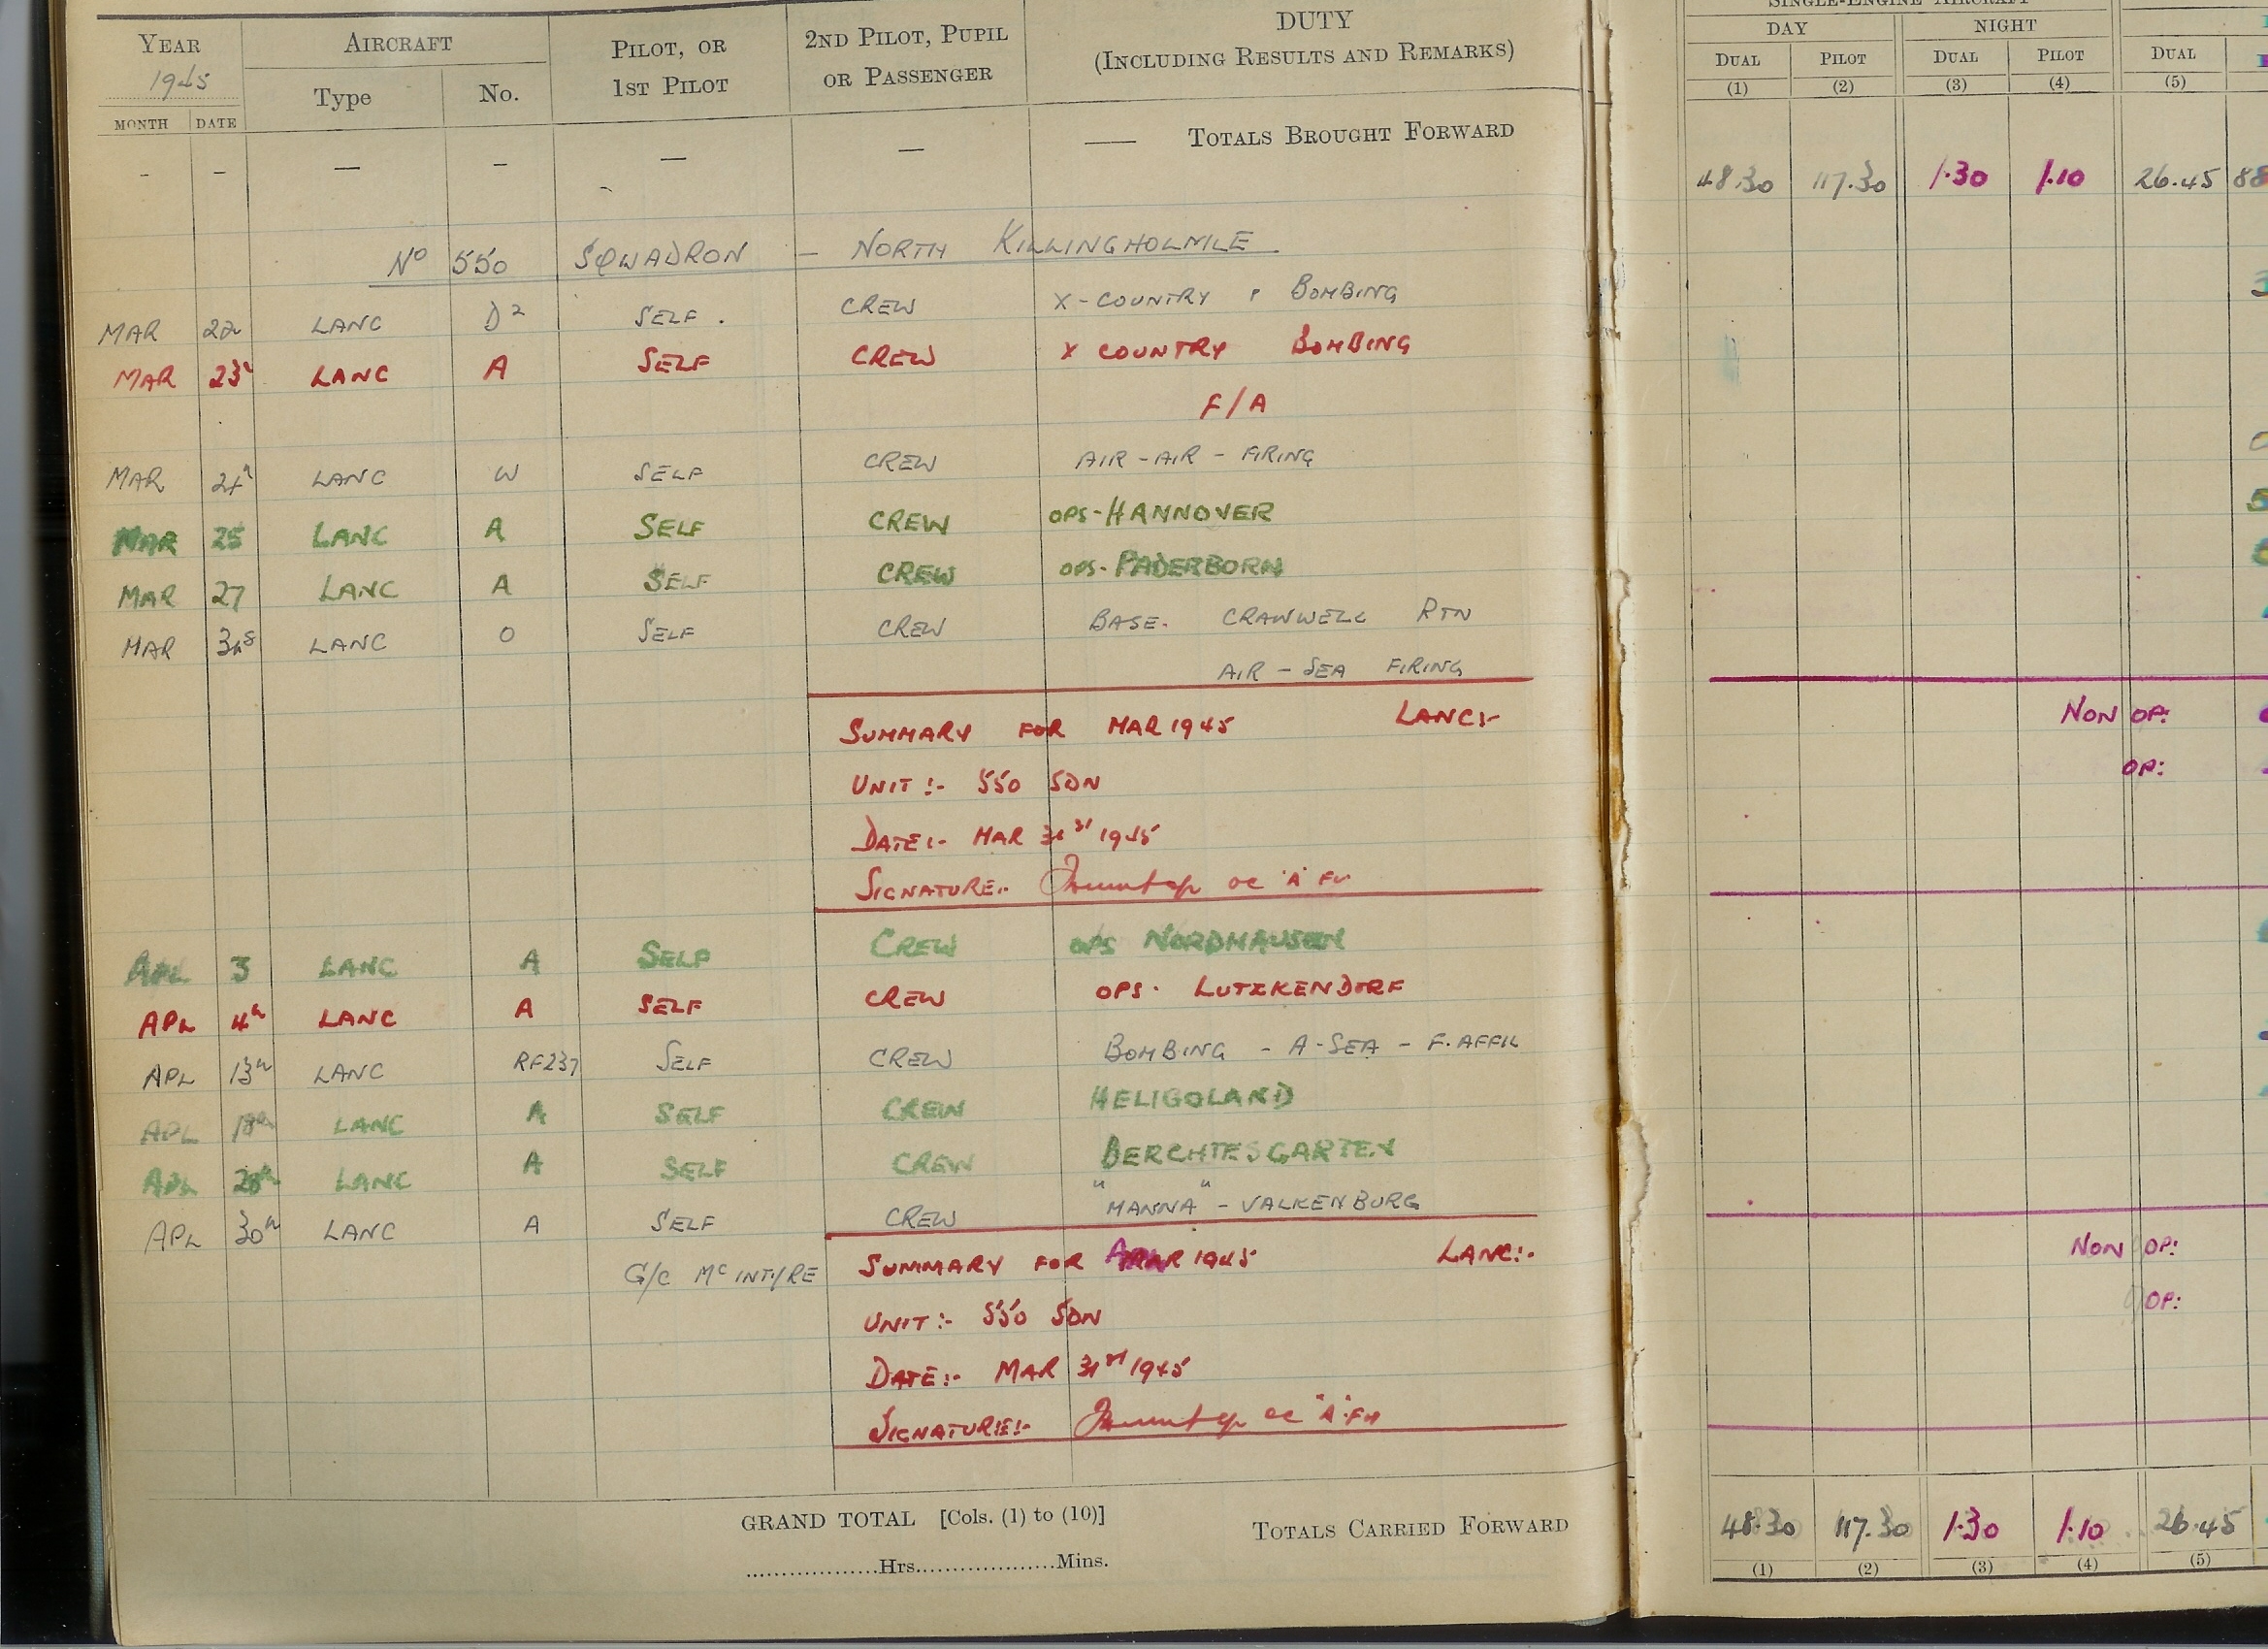 YEAR AIRCRAFT PILOT, OR 2ND PILOT, PUPIL DUTY
1945 Type No. 1ST PILOT OR PASSENGER (INCLUDING RESULTS AND REMARKS)
MONTH DATE
— TOTALS BROUGHT FORWARD
- - — - — —
No 550 SQUADRON - NORTH KILLINGHOLMLE.
MAR 22 LANC D2 SELF. CREW X-COUNTRY & BOMBING
MAR 23 LANC A SELF CREW X COUNTRY BOMBING
F/A
MAR LANC W SELF CREW AIR-AIR-FIRING
MAR 25 LANC A SELF CREW OPS-HANNOVER
MAR 27 LANC A SELF CREW OPS. PADERBORN
MAR LANC O SELF CREW BASE. CRANWELL RTN
AIR-SEA FIRING
SUMMARY FOR MAR 1945 LANC:-
UNIT:- 550 SQN
DATE:- MAR 31st 1945
SIGNATURE:- oc "A"
APL 3 LANC A SELF CREW OPS NORDHAUSEN
APL 4th LANC A SELF CREW OPS. LUTZKENDORF
APL 13th LANC RF237 SELF CREW BOMBING - A-SEA - F.AFFIL
APL 18th LANC A SELF CREW HELIGOLAND
APL LANC A SELF CREW BERCHTESGARTEN
APL 30th LANC A SELF CREW "MANNA" - VALKENBURG
G/C McINTYRE
SUMMARY FOR 1945 LANC:-
UNIT:- 550 SQN
DATE:- MAR 31st 1945
SIGNATURE:- oc "A"
GRAND TOTAL [Cols. (1) to (10)] TOTALS CARRIED FORWARD
..................Hrs...................Mins.
SINGLE-ENGINE AIRCRAFT
DAY NIGHT
DUAL PILOT DUAL PILOT DUAL
(1) (2) (3) (4) (5)
48.30 117.30 1.30 1.10 26.45 88
NON OP:
OP:
NON OP:
OP:
48.30 117.30 1.30 1.10 26.45
(1) (2) (3) (4) (5)